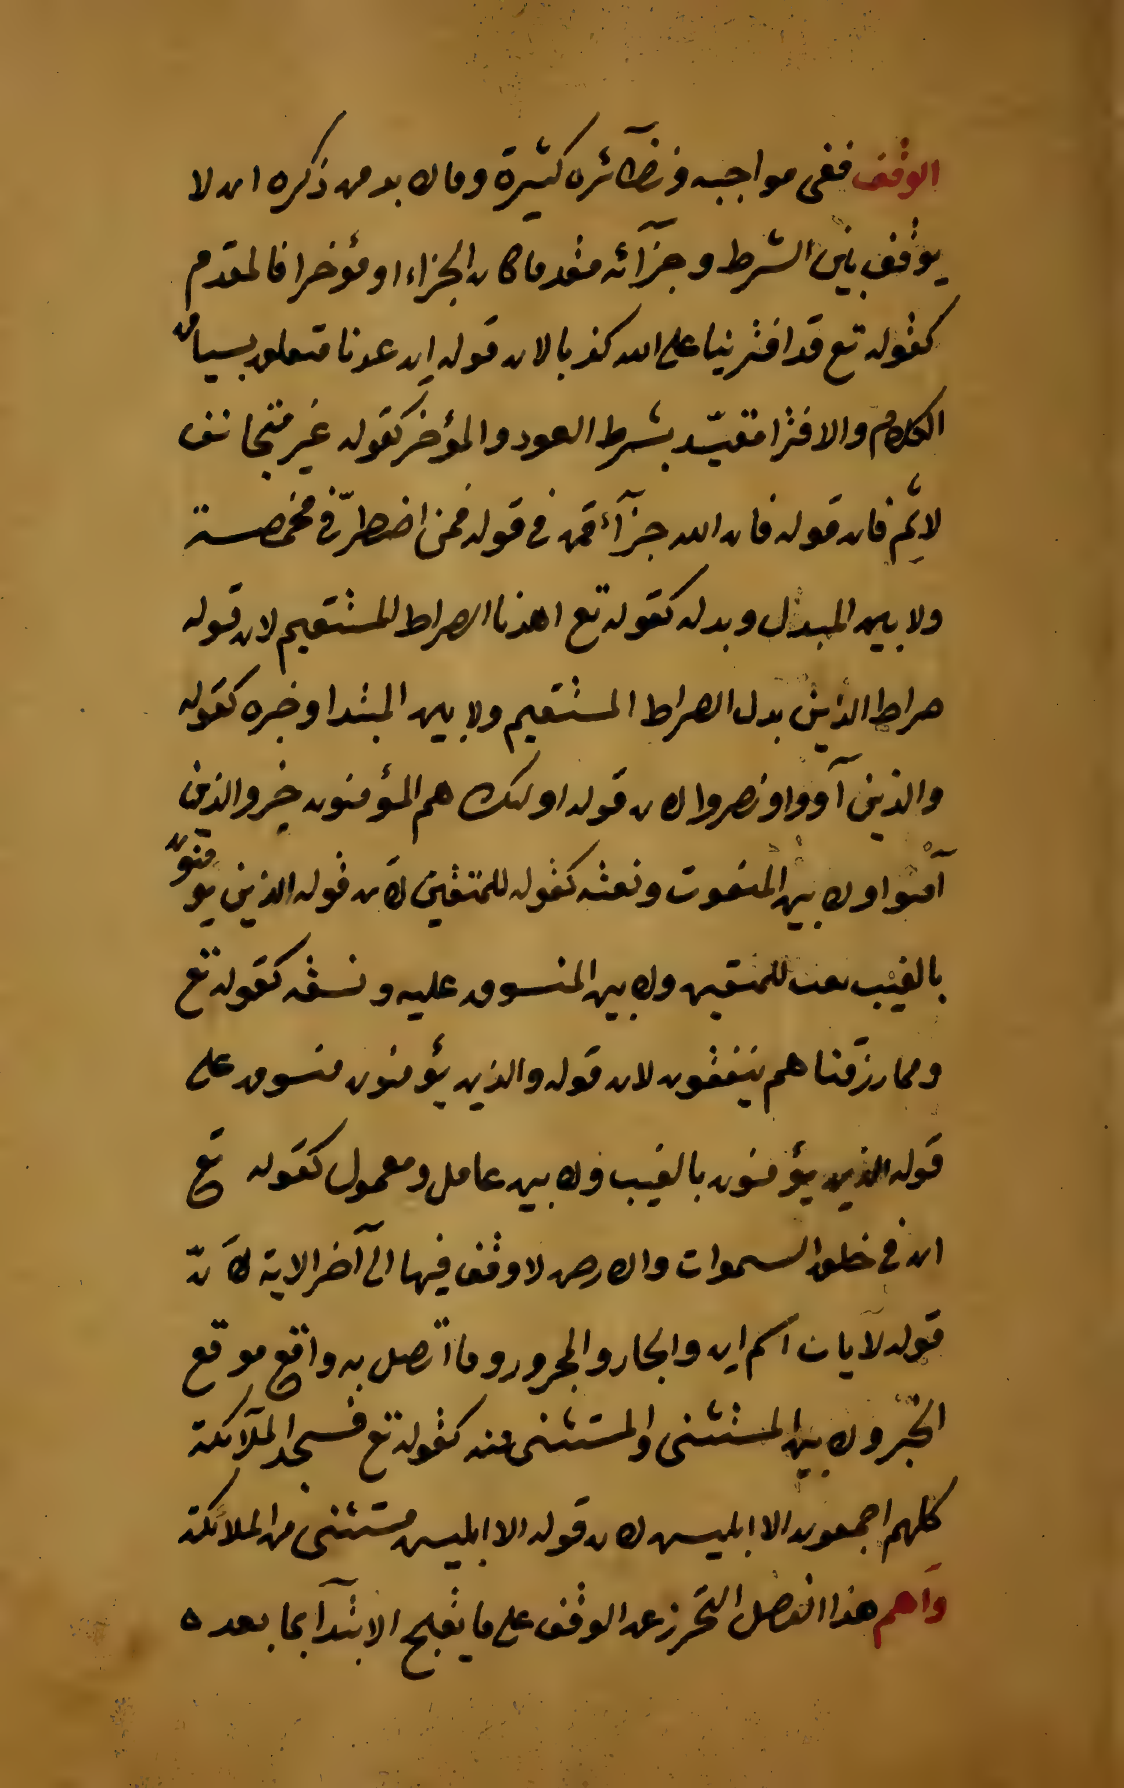 الوقف ففى مواجبه ونظآئره كثيرة ومالا بد من ذكره ان لا
يوقف بين الشرط وجزآئه مقدما كان الجزاء او مؤخرا فالمقدم
كقوله تع قد افترينا على الله كذبا لان قوله ان عدنا متعلق بسياق
الكلام والافترا متقيّد بشرط العود والمؤخر كقوله غير متجانف
لاثم فان قوله فان الله جزآء فمن فى قوله فمن اضطرّ فى مخمصة
ولا بين المبدل وبدله كقوله تع اهدنا الصراط المستقيم لان قوله
صراط الذين بدل الصراط المستقيم ولا بين المبتدا وخبره كقوله
والذين آووا ونصروا لان قوله اولئك هم المؤمنون خبر والذين
آمنوا ولا بين المنعوت ونعته كقوله للمتقين لان قوله الذين يؤمنون
بالغيب نعت للمتقين ولا بين المنسوق عليه ونسقه كقوله تع
ومما رزقناهم ينفقون لان قوله والذين يؤمنون منسوق على
قوله الذين يؤمنون بالغيب ولا بين عامل ومعمول كقوله تع
ان فى خلق السموات والارض لا وقف فيها الى آخر الاية لانّ
قوله لآيات اسم ان والجار والمجرور وما اتصل به واقع موقع
الخبر ولا بين المستثنى والمستثنى منه كقوله تع فسجد الملآئكة
كلهم اجمعون الا ابليس لان قوله الا ابليس مستثنى من الملائكة
واهم هذا الفصل التحرز عن الوقف على ما يقبح الابتدآ بما بعده